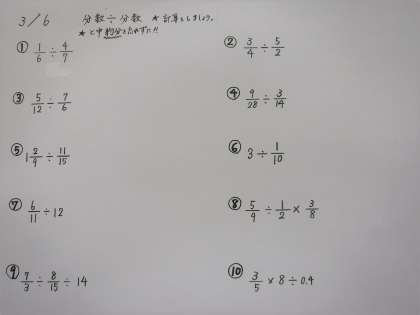 3/6 分数÷分数 ★計算をしましょう。
★と中約分をわすれずに!!
① 1/6 ÷ 4/7 ② 3/4 ÷ 5/2
③ 5/12 ÷ 7/6 ④ 9/28 ÷ 3/14
⑤ 1 2/9 ÷ 11/15 ⑥ 3 ÷ 1/10
⑦ 6/11 ÷ 12 ⑧ 5/9 ÷ 1/2 × 3/8
⑨ 7/3 ÷ 8/15 ÷ 14 ⑩ 3/5 × 8 ÷ 0.4